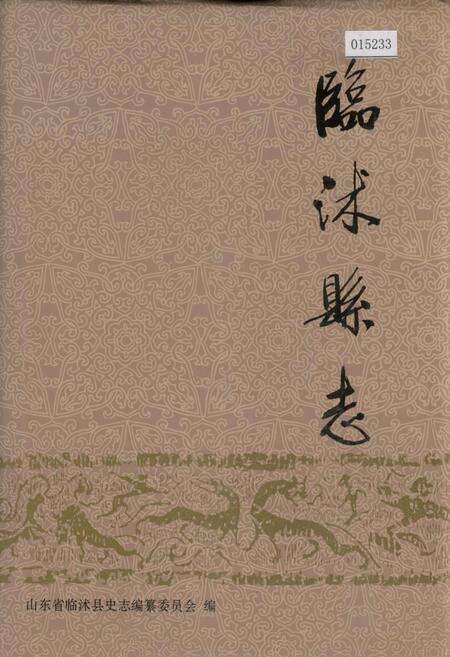 015233
臨沭縣志
山东省临沭县史志编纂委员会 编